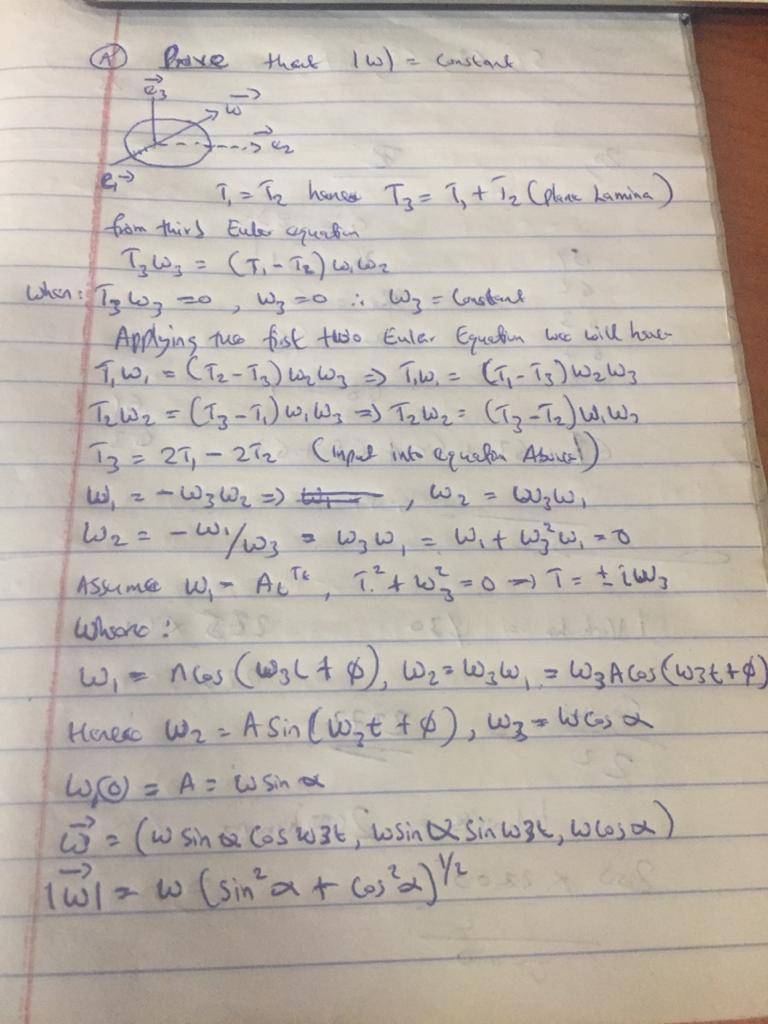 (A) Prove that |ω| = constant
e3
ω
e2
e1
T1 = T2 hence T3 = T1 + T2 (plane Lamina)
from third Euler equation
T3ω3 = (T1 - T2) ω1ω2
When: T3ω3 = 0, ω3 = 0 ∴ ω3 = Constant
Applying two first two Euler Equation we will have
T1ω1 = (T2 - T3) ω2ω3 => T1ω1 = (T1 - T3) ω2ω3
T2ω2 = (T3 - T1) ω1ω3 => T2ω2 = (T3 - T2) ω1ω3
T3 = 2T1 - 2T2 (Input into equation Above)
ω1 = -ω3ω2 => , ω2 = ω3ω1
ω2 = -ω1/ω3 = ω3ω1 = ω1 + ω3²ω1 = 0
Assume ω1 = At^Tt, T² + ω3² = 0 => T = ±iω3
Where:
ω1 = A cos (ω3t + φ), ω2 = ω3ω1 = ω3A cos (ω3t + φ)
Hence ω2 = A Sin (ω3t + φ), ω3 = ω cos α
ω1(0) = A = ω sin α
ω = (ω sin α cos ω3t, ω sin α sin ω3t, ω cos α)
|ω| = ω (sin²α + cos²α)^1/2